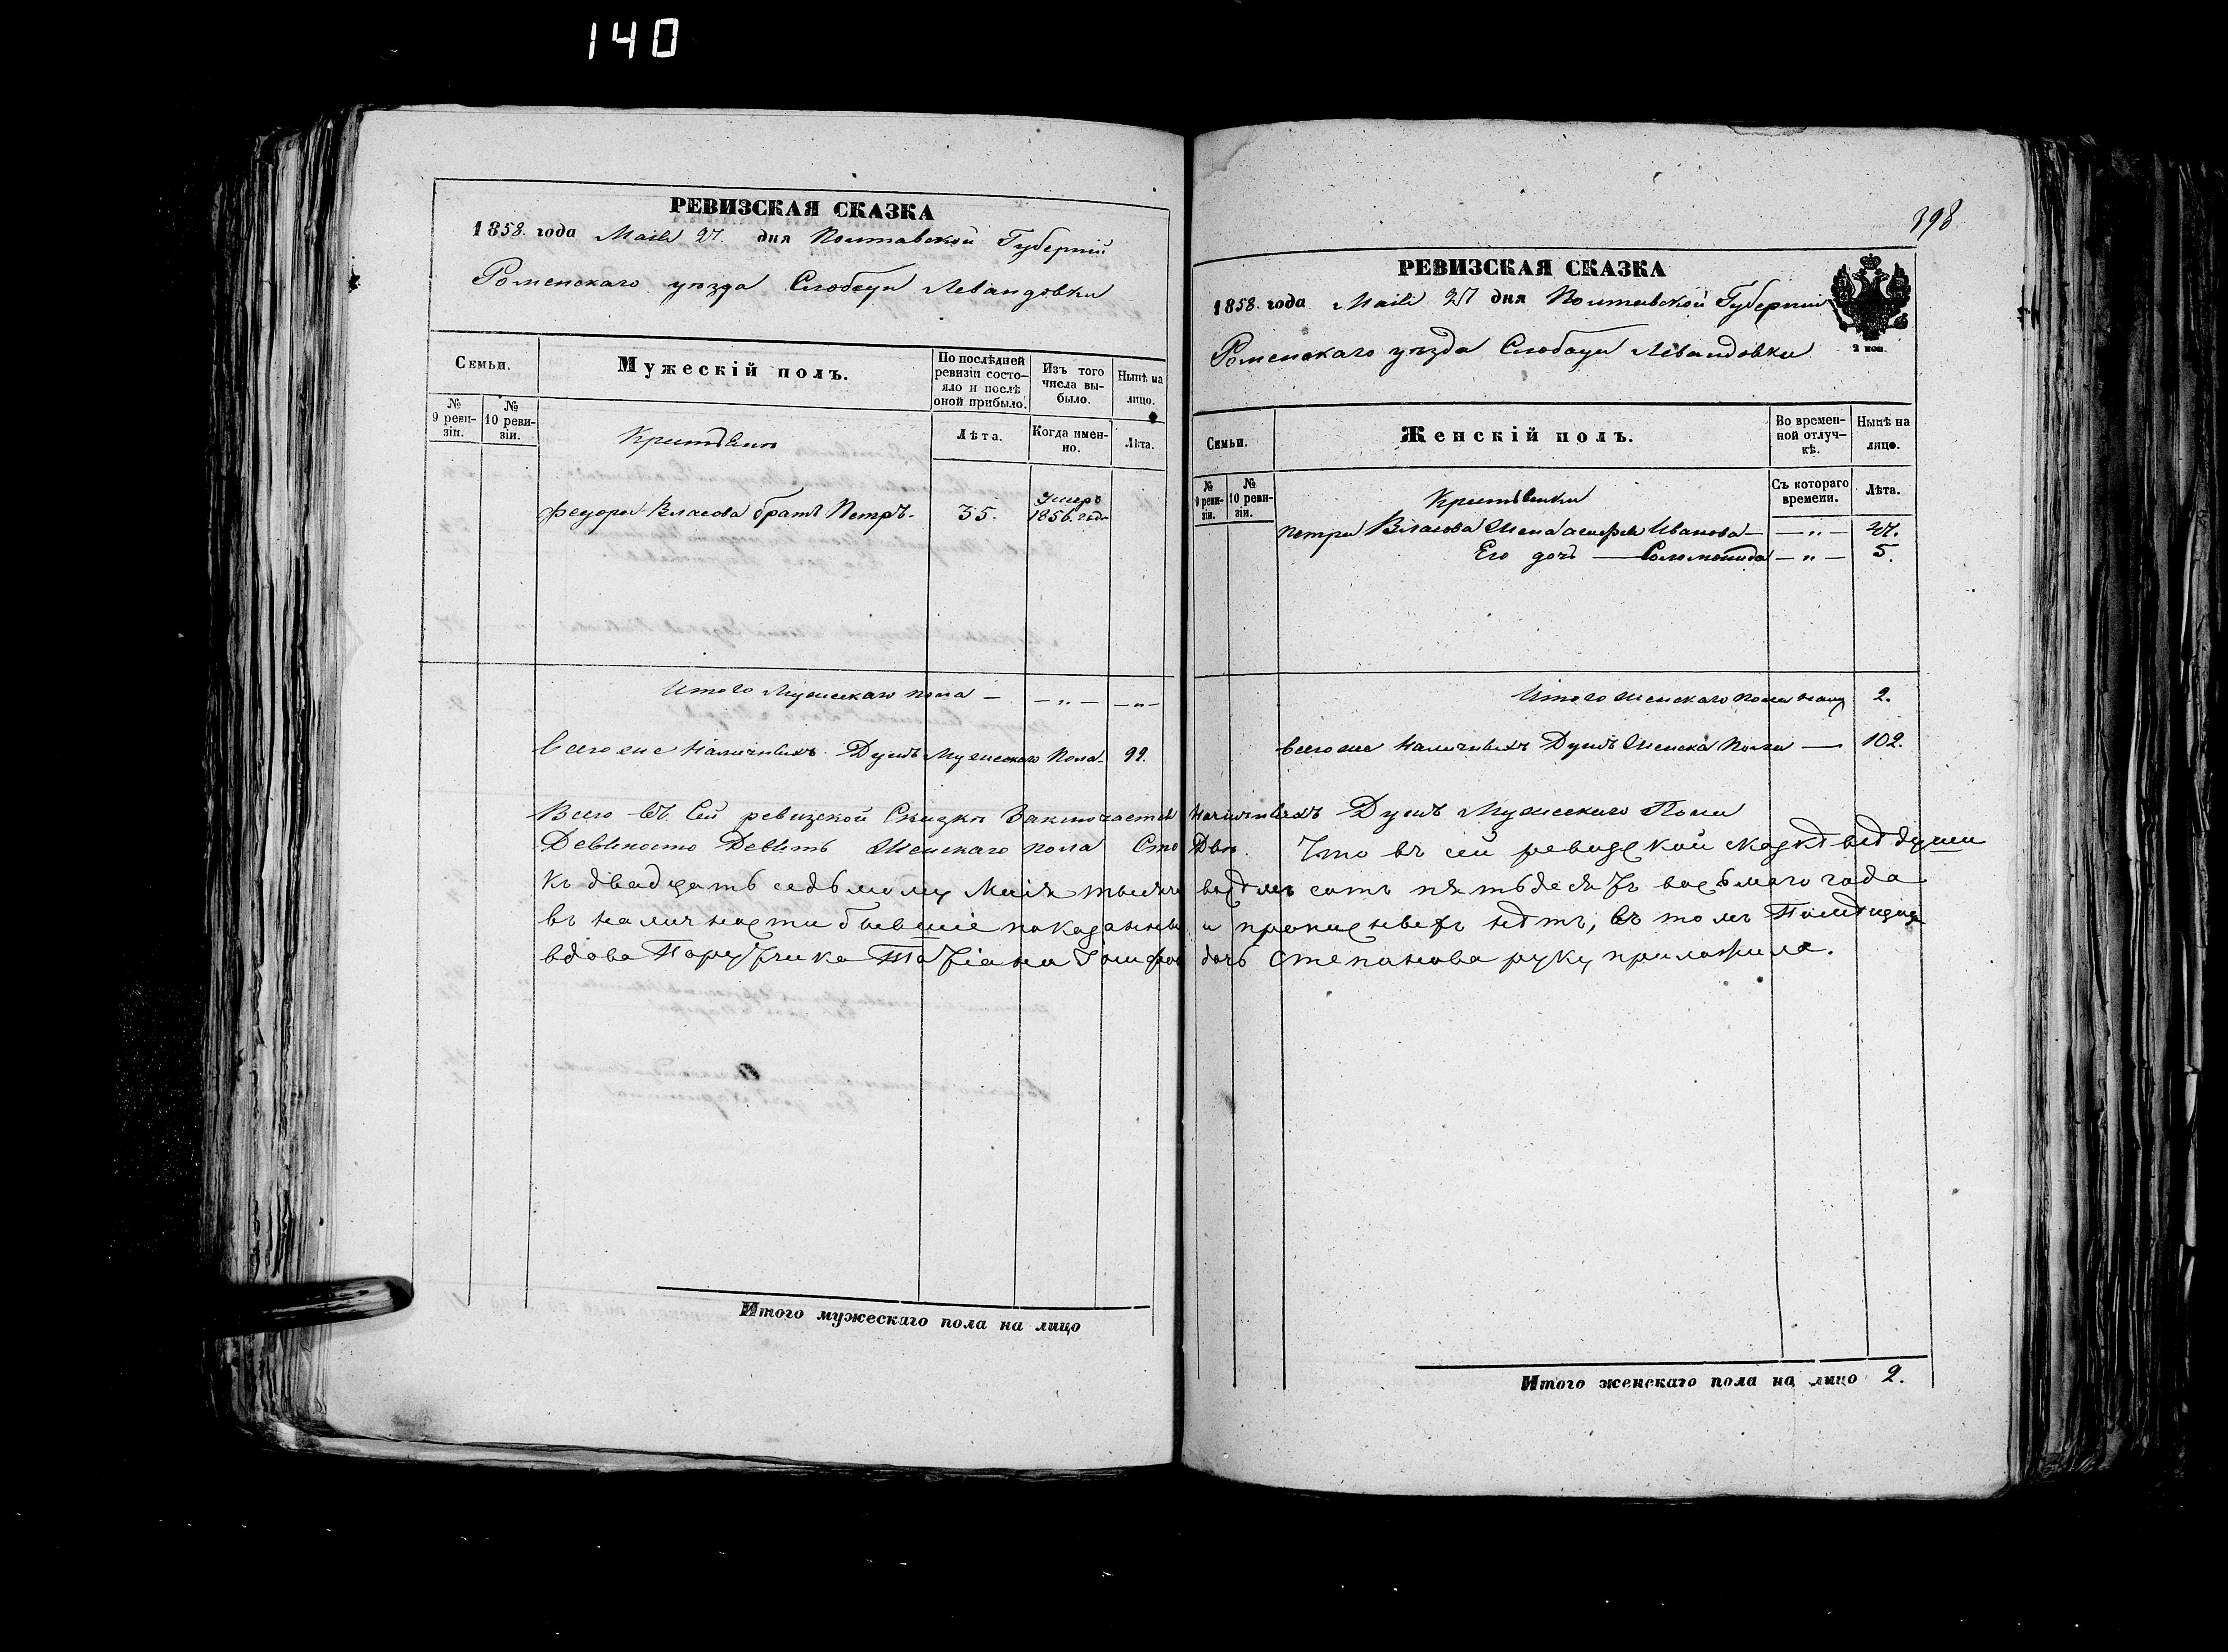 140
РЕВИЗСКАЯ СКАЗКА
1858. года Маія 27. дня Полтавской Губерніи
Роменскаго уѣзда Слободы Левандовки
Семьи.
Мужескій полъ.
По послѣдней ревизіи состо-
яло и послѣ
оной прибыло.
Изъ того
числа вы-
было.
Нынѣ на
лицо.
№
9 реви-
зіи.
№
10 реви-
зіи.
Лѣта.
Когда имен-
но.
Лѣта.
Крестьяне
Федора Власова братъ Петръ.
35.
Умеръ
1856. года
Итого Мужескаго пола — — „ — — „ —
Всего же Наличныхъ Душъ Мужескаго Пола 99.
398
РЕВИЗСКАЯ СКАЗКА
1858. года Маія 27 дня Полтавской Губерніи
2 коп.
Роменскаго уѣзда Слободы Левандовки
Семьи.
Женскій полъ.
Во времен-
ной отлуч-
кѣ.
Нынѣ на
лицо.
№
9 реви-
зіи.
№
10 реви-
зіи.
Съ котораго
времени.
Лѣта.
Крестьянки
Петра Власова Жена Иванова — — „ — 27.
Его дочь — Соломонида — „ — 5.
Итого женскаго пола 2.
Всего же Наличныхъ Душъ Женска Пола — 102.
Всего въ Сей ревизской Сказкѣ Заключается Наличныхъ Душъ Мужескаго Пола
Девяносто Девять Женскаго пола Сто Двѣ. Что въ сей ревизской сказкѣ всѣ души
къ двадцать седьмому Маія тысяча восемь сотъ пятьдесятъ восьмаго года
въ наличности бывшіе показаны и прописныхъ нѣтъ, въ томъ Помѣщица
вдова Поручика Татіана дочь Степанова руку приложила.
Итого мужескаго пола на лицо
Итого женскаго пола на лицо 2.